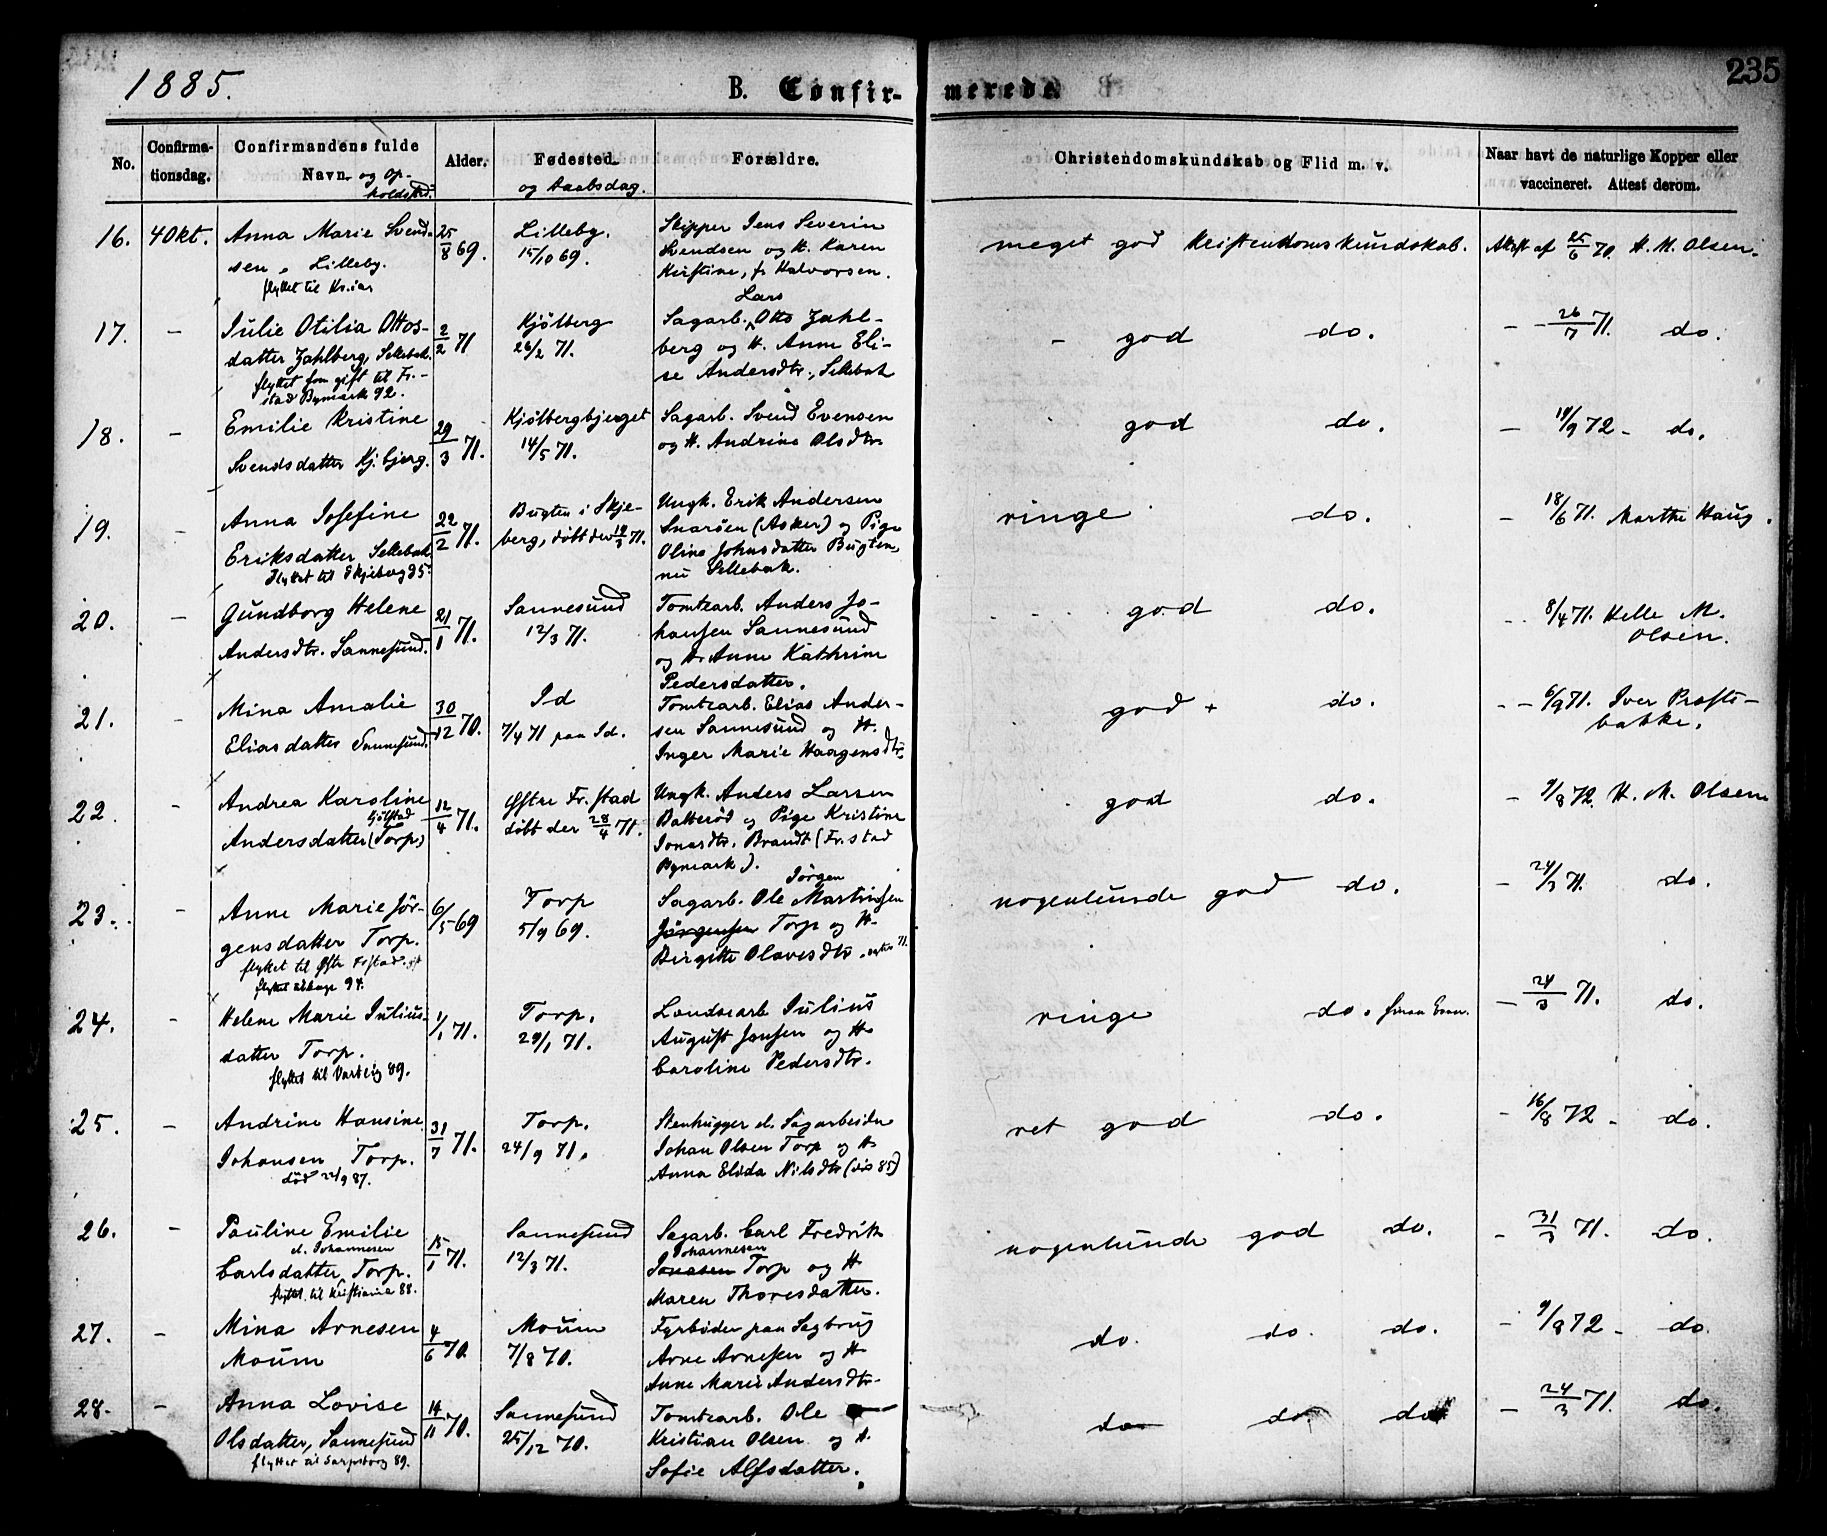 1885.
B. Confirmerede.
235
No.
Confirmationsdag.
Confirmandens fulde Navn og Opholdssted.
Alder.
Fødested og Daabsdag.
Forældre.
Christendomskundskab og Flid m. v.
Naar havt de naturlige Kopper eller vaccineret. Attest derom.
16. 4 Okt. Anna Marie Svend- 25/8 69. Lilleby. Skipper Jens Severin meget god Kristendomskundskab. Atst af 25/6 70. H. M. Olsen.
sen, Lilleby. 15/10 69. Svendsen og H. Karen
flyttet til Kr.ia Kirstine, f. Halvorsen.
Lars
17. - Julie Otilia Ottos- 2/2 71 Kjölberg Sagarb. Otto Zahl- - god do. - - 26/7 71. do.
datter Zahlberg, Sellebak. 26/2 71. berg og H. Anne Eli-
flyttet som gift til Fr.- se Andersdtr., Sellebak
stad Bymark 92.
18. - Emilie Kristine 29/3 71. Kjølbergbjerget Sagarb. Svend Evensen god do. - 19/9 72 - do.
Svendsdatter Kj.bjerg. 14/5 71. og H. Andrine Olsdtr
19. - Anna Josefine 22/2 71. Bugten i Skje- Ungk. Erik Andersen ringe do. - 18/6 71. Marthe Haug.
Eriksdatter Sellebak berg, døbt den 19/3 71. Snarøen (Asker) og Pige
flyttet til Skjeberg 95. Oline Johnsdatter Bugten,
nu Sellebak.
20. - Gundborg Helene 21/1 71. Sannesund Tomtearb. Anders Jo- god do. - 8/4 71. Helle M.
Andersdtr. Sannesund. 12/3 71. hansen Sannesund Olsen.
og H. Anne Kathrine
Pedersdatter.
21. - Mina Amalie 30/12 70. Id Tomtearb. Elias Ander- god + do. - - 6/9 71. Iver Præste-
Eliasdatter Sannesund. 7/4 71 paa Id. sen Sannesund og H. bakke.
Inger Marie Haagensdtr.
22. - Andrea Karoline 12/4 71. Østre Fr.stad Ungk. Anders Larsen god do. - 9/8 72. H. M. Olsen
Andersdatter (Torp) døbt den 28/4 71. Batterød og Pige Kristine
Jonasdtr. Brandt (Fr.stad
Bymark).
Jörgen
23. - Anne Marie Jör- 6/5 69 Torp Sagarb. Ole Martinsen nogenlunde god do. - 24/3 71. do.
gensdatter Torp. 5/9 69. Jörgensen Torp og H.
flyttet til Østre Frstad Birgitte Olavesdtr.
flyttet tilbage 94.
24. - Helene Marie Julius- 1/1 71. Torp. Londsearb Julius ringe do. - 24/3 71. do.
datter Torp. 29/1 71. August Jansen og H
flyttet til Varteig 89. Caroline Pedersdtr.
25. - Andrine Hansine 31/7 71. Torp. Stenhugger el. Sagarbeider ret god do. - 16/8 72 - do.
Johansen Torp. 24/9 71. Johan Olsen Torp og H
død 22/9 87. Anna Elida Nilsdtr
26. - Pauline Emilie 15/1 71. Sannesund Sagarb. Carl Fredrik nogenlunde god do. - 31/3 71. do.
el. Johannesen Johannesen
Carlsdatter, Torp. 12/3 71. Jonasen Torp og H
flyttet til Kristiania 88. Maren Thoresdatter.
27. - Mina Arnesen 4/6 70. Moum Fyrbøder paa Sagbrug do. do. do. - 9/8 72 - do.
Moum 7/8 70. Arne Arnesen og H
Anne Marie Andersdtr.
28. - Anna Lovise 14/11 70. Sannesund Tomtearb. Ole do do. do - 24/3 71. do.
Olsdatter, Sannesund 25/12 70. Kristian Olsen og H.
flyttet til Sarpsborg 89. Sofie Alfsdatter.